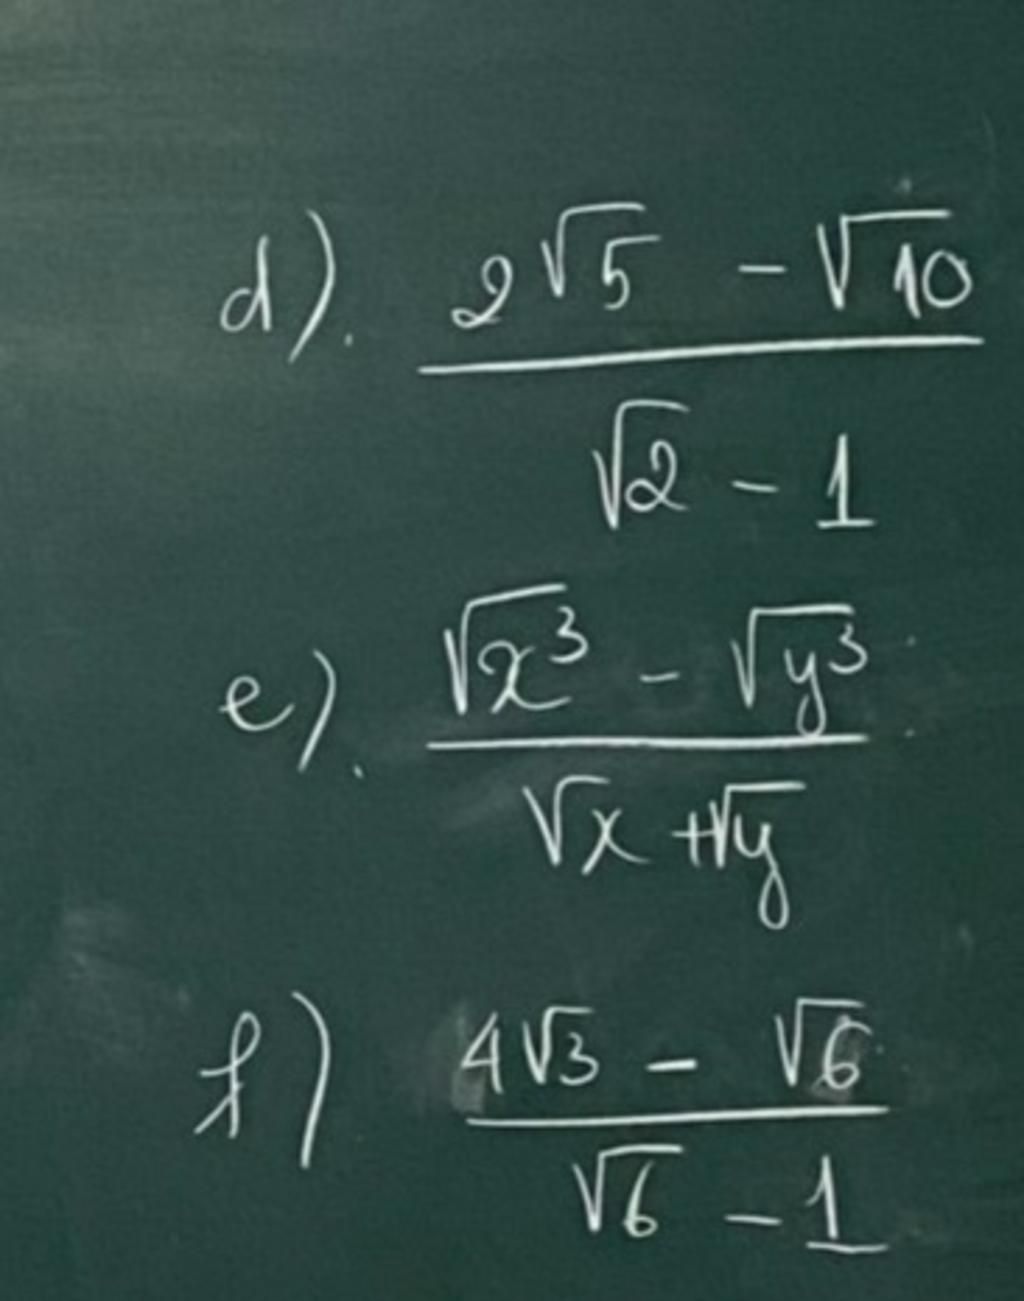 d). 2√5 - √10
√2 - 1
e). √x³ - √y³
√x + √y
f) 4√3 - √6
√6 - 1